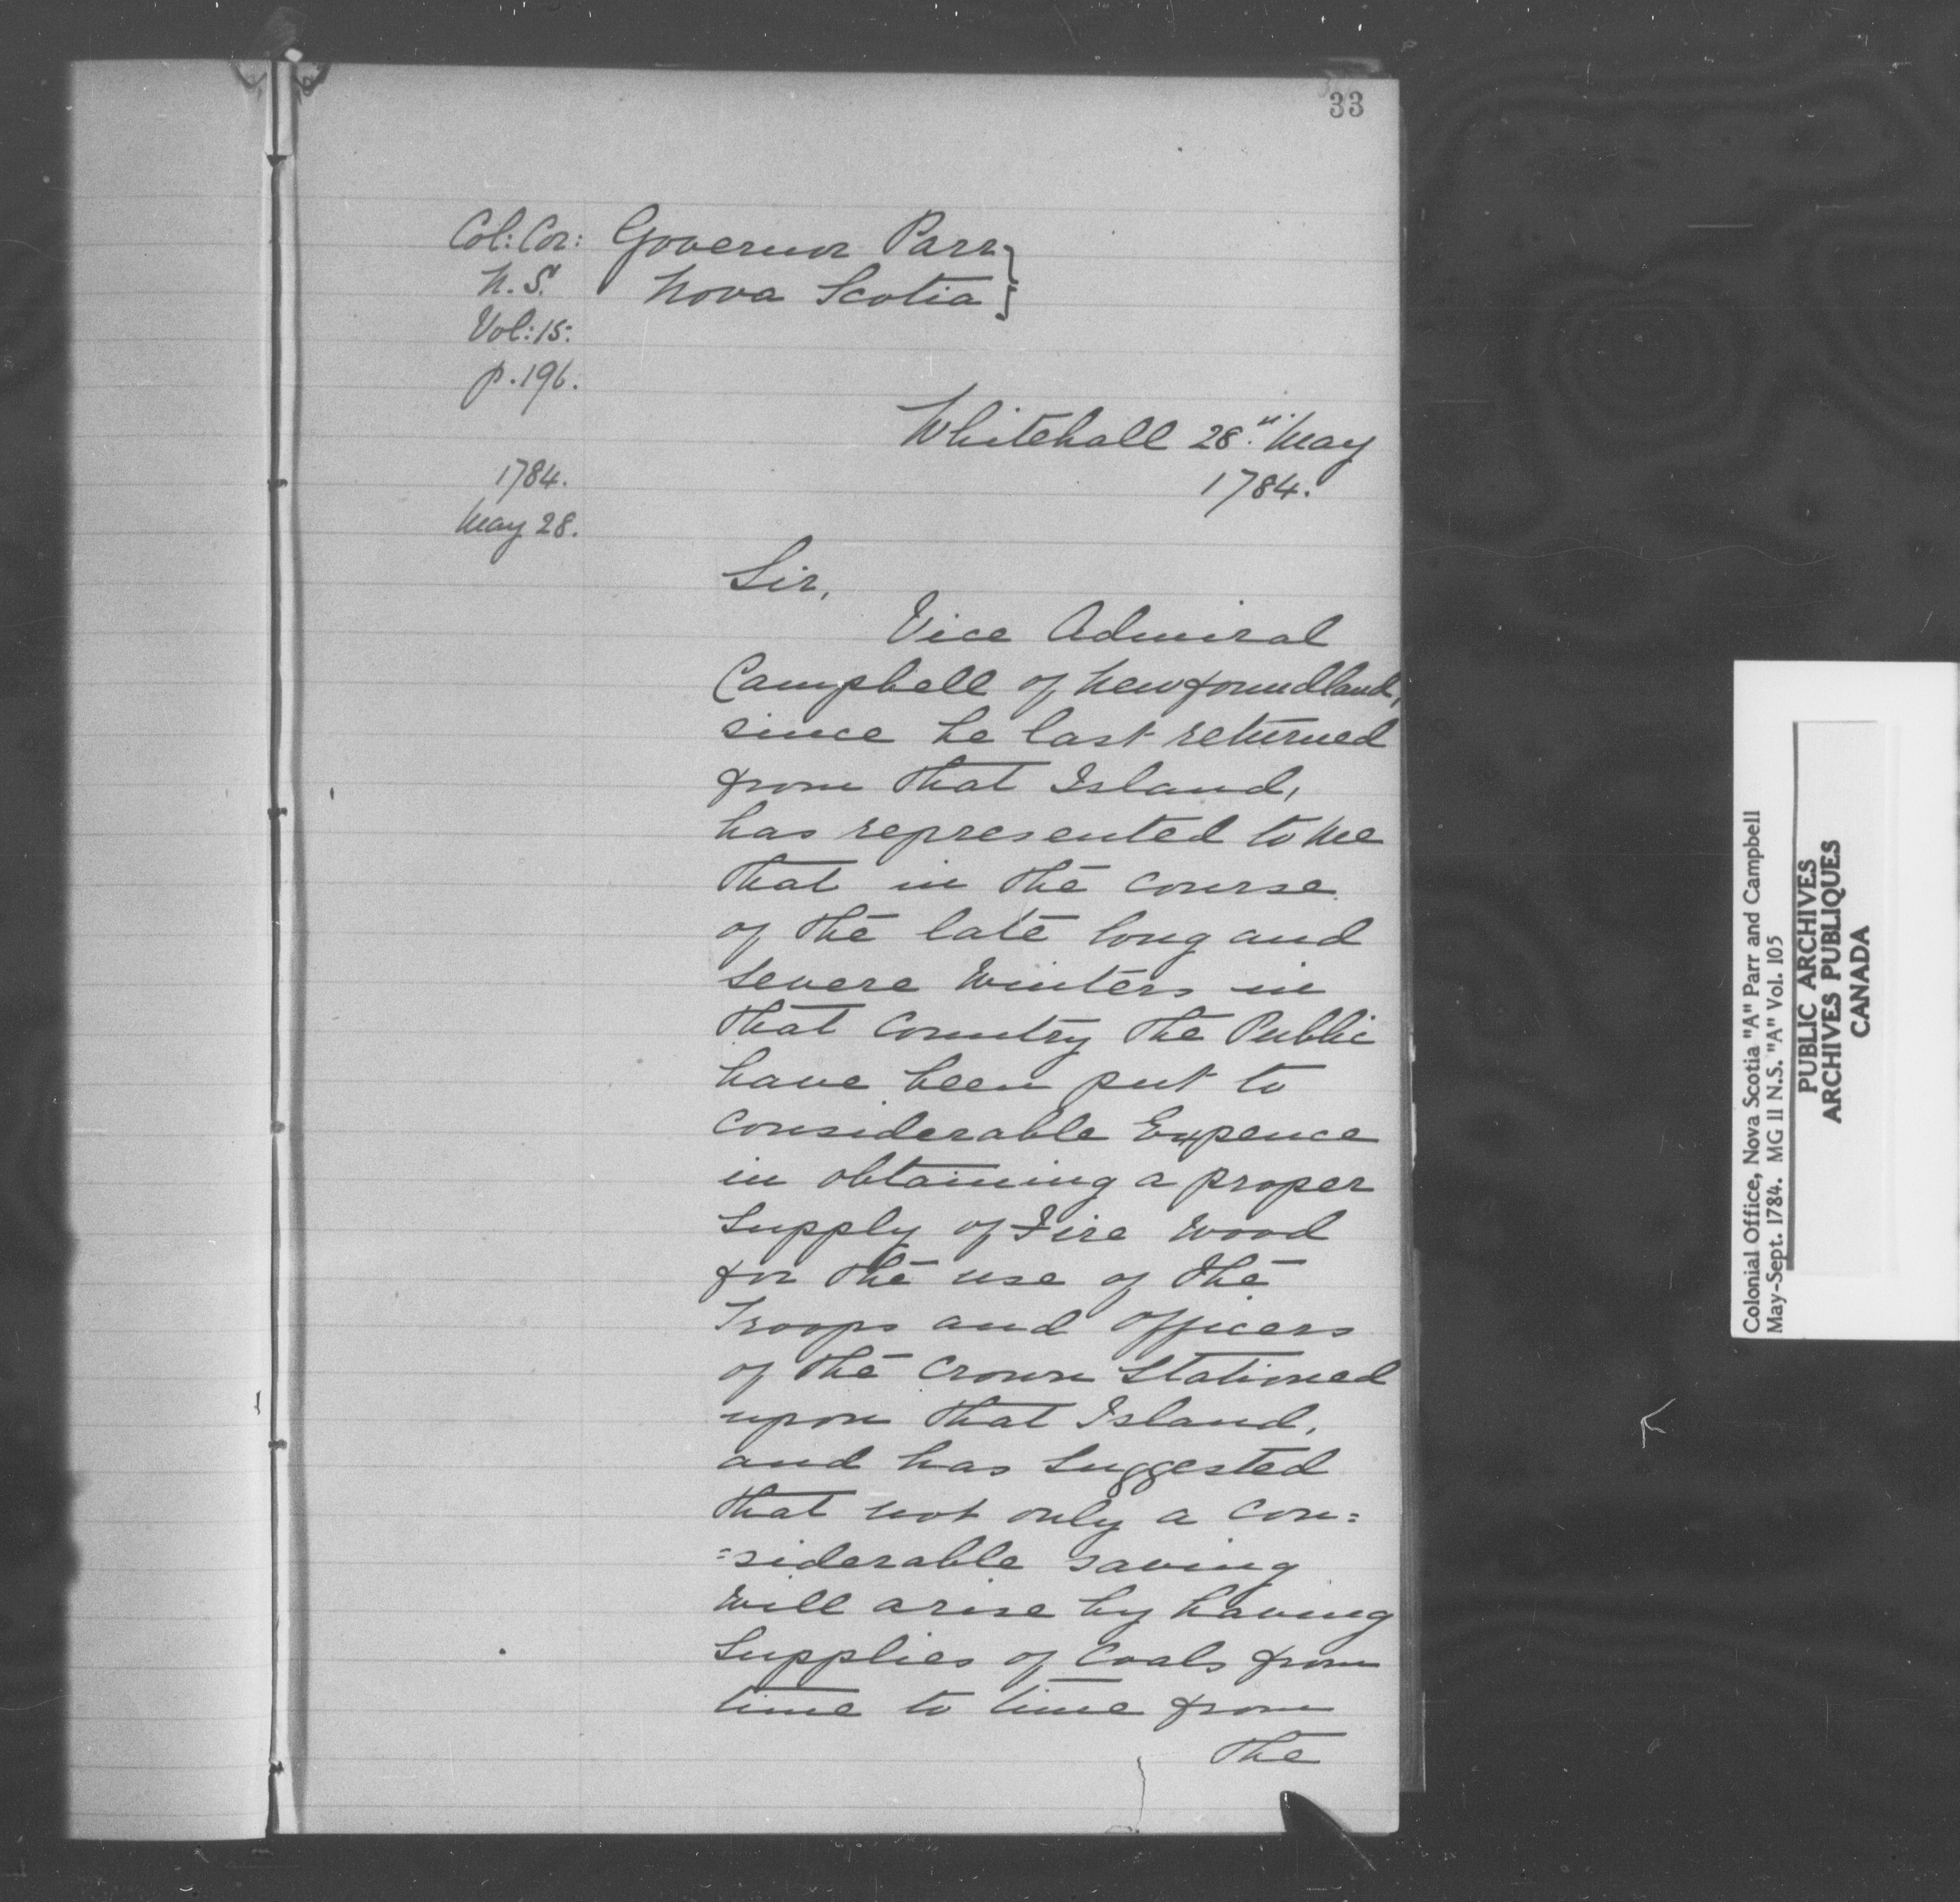 33
Col: Cor: Governor Parr }
N.S. Nova Scotia }
Vol: 15:
p. 196.
Whitehall 28th May
1784.
1784.
May 28.
Sir,
Vice Admiral
Campbell of Newfoundland,
since he last returned
from that Island,
has represented to me
that in the course
of the late long and
severe Winters in
that Country the Public
have been put to
considerable Expence
in obtaining a proper
Supply of Fire Wood
for the use of the
Troops and Officers
of the Crown Stationed
upon that Island,
and has Suggested
that not only a con=
=siderable saving
will arise by having
Supplies of Coals from
time to time from
the
Colonial Office, Nova Scotia "A" Parr and Campbell
May-Sept. 1784. MG 11 N.S. "A" Vol. 105
PUBLIC ARCHIVES
ARCHIVES PUBLIQUES
CANADA